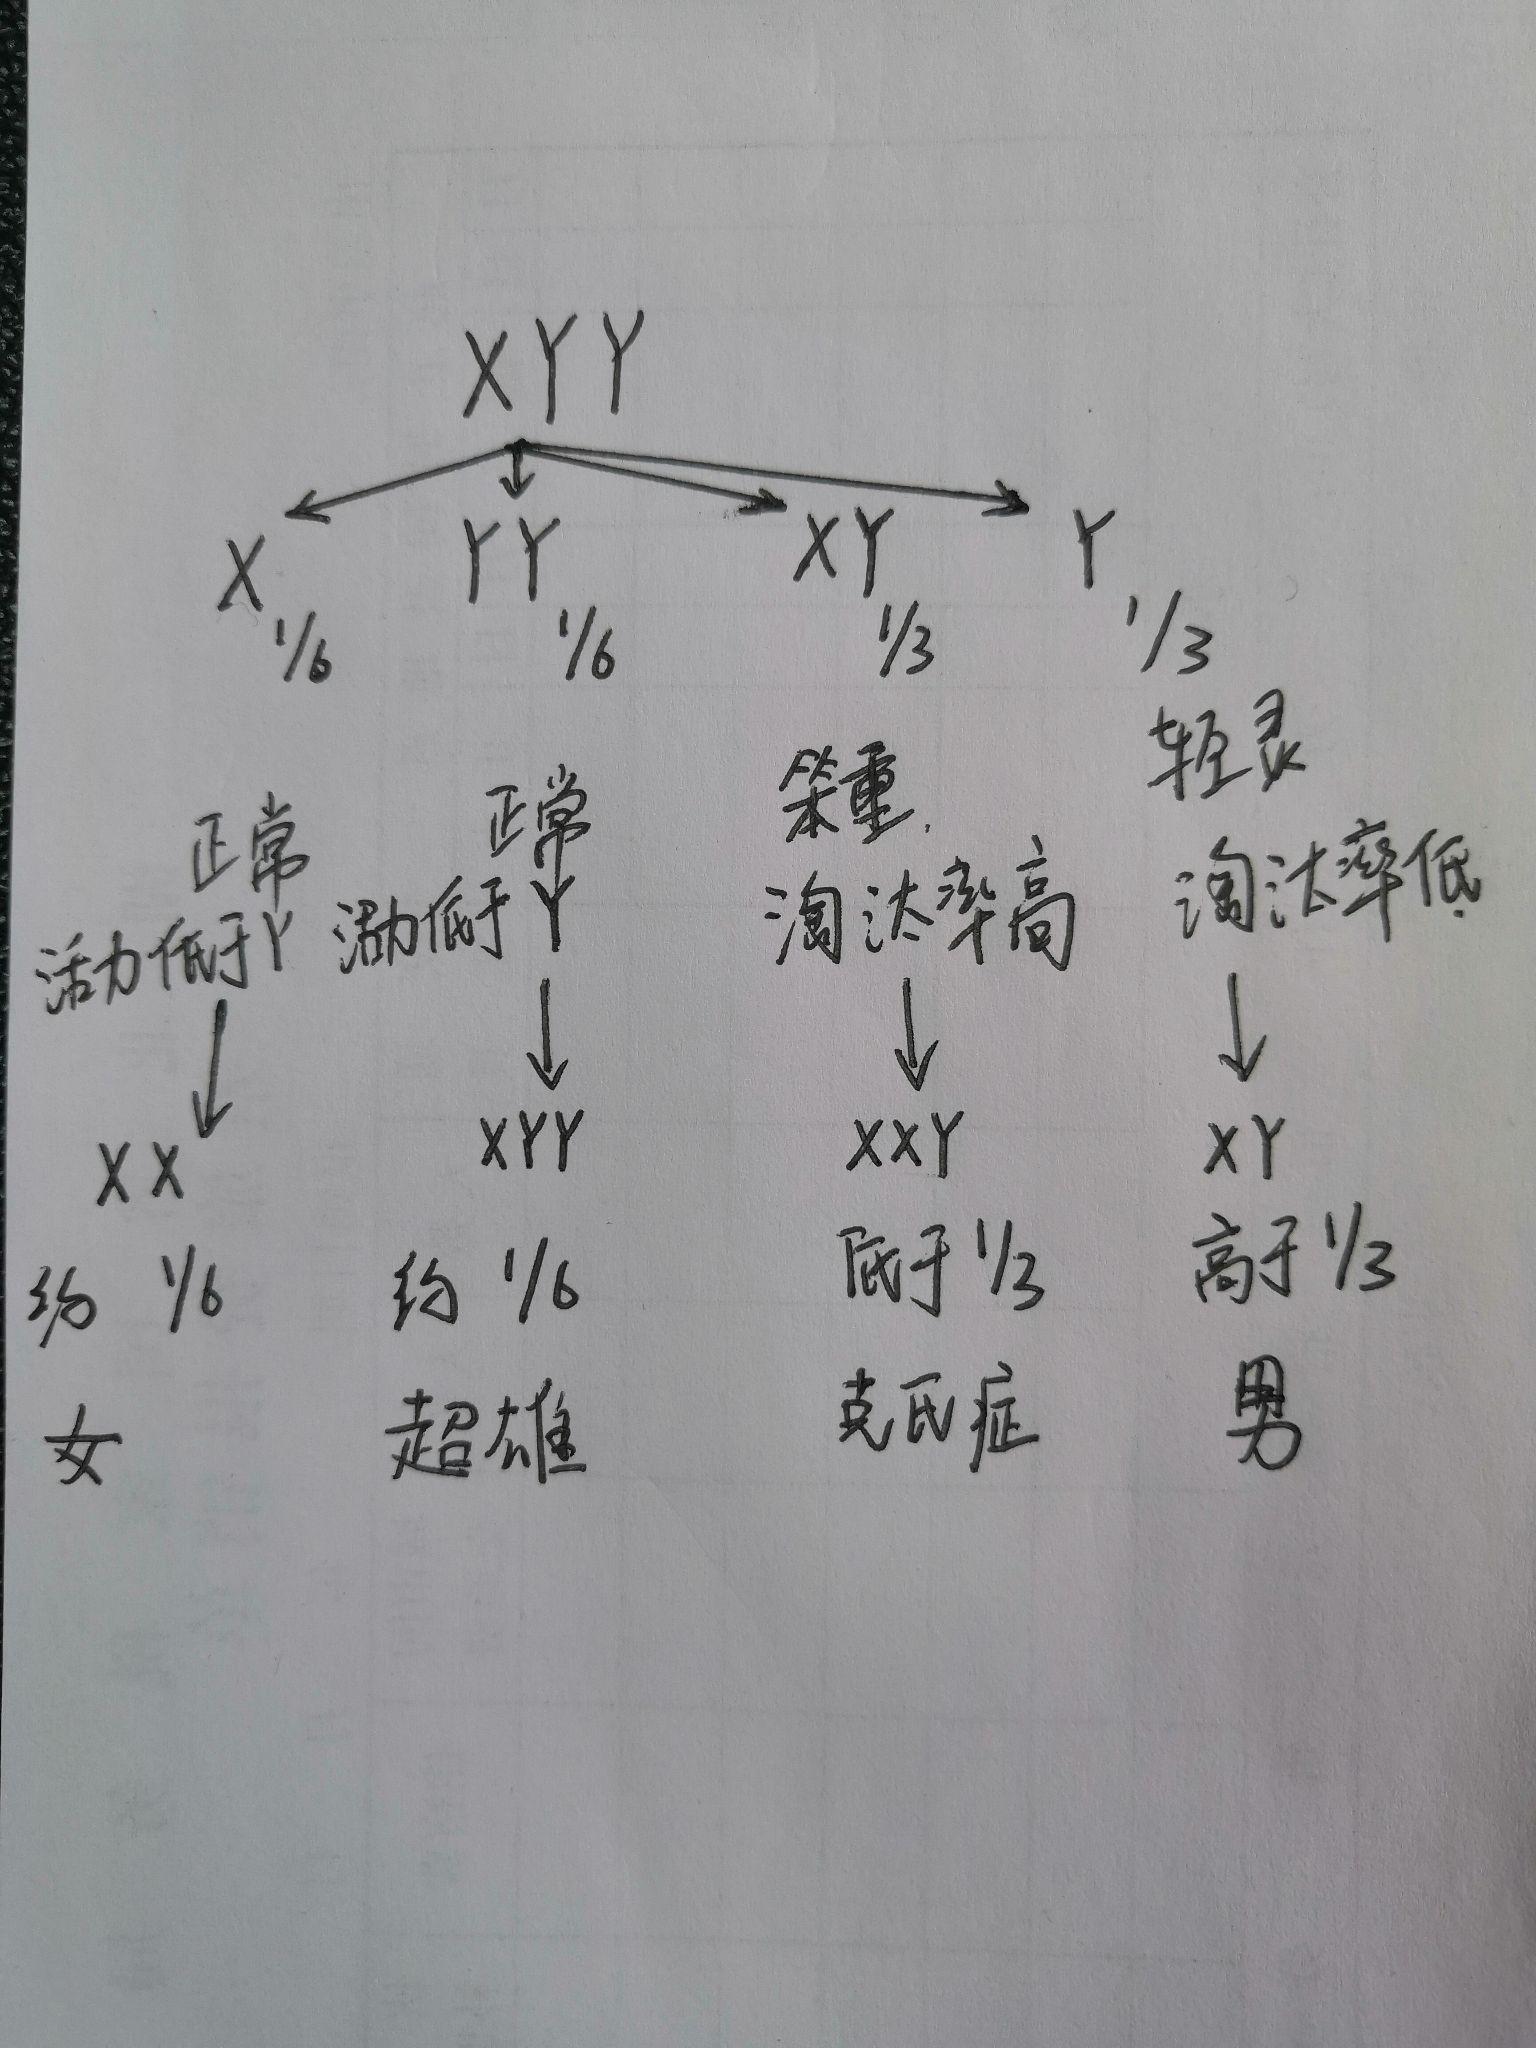 XYY
X YY XY Y
1/6 1/6 1/3 1/3
正常 正常 笨重, 轻灵
活力低于Y 活力低于Y 淘汰率高 淘汰率低
XX XYY XXY XY
约 1/6 约 1/6 低于 1/3 高于 1/3
女 超雄 克氏症 男